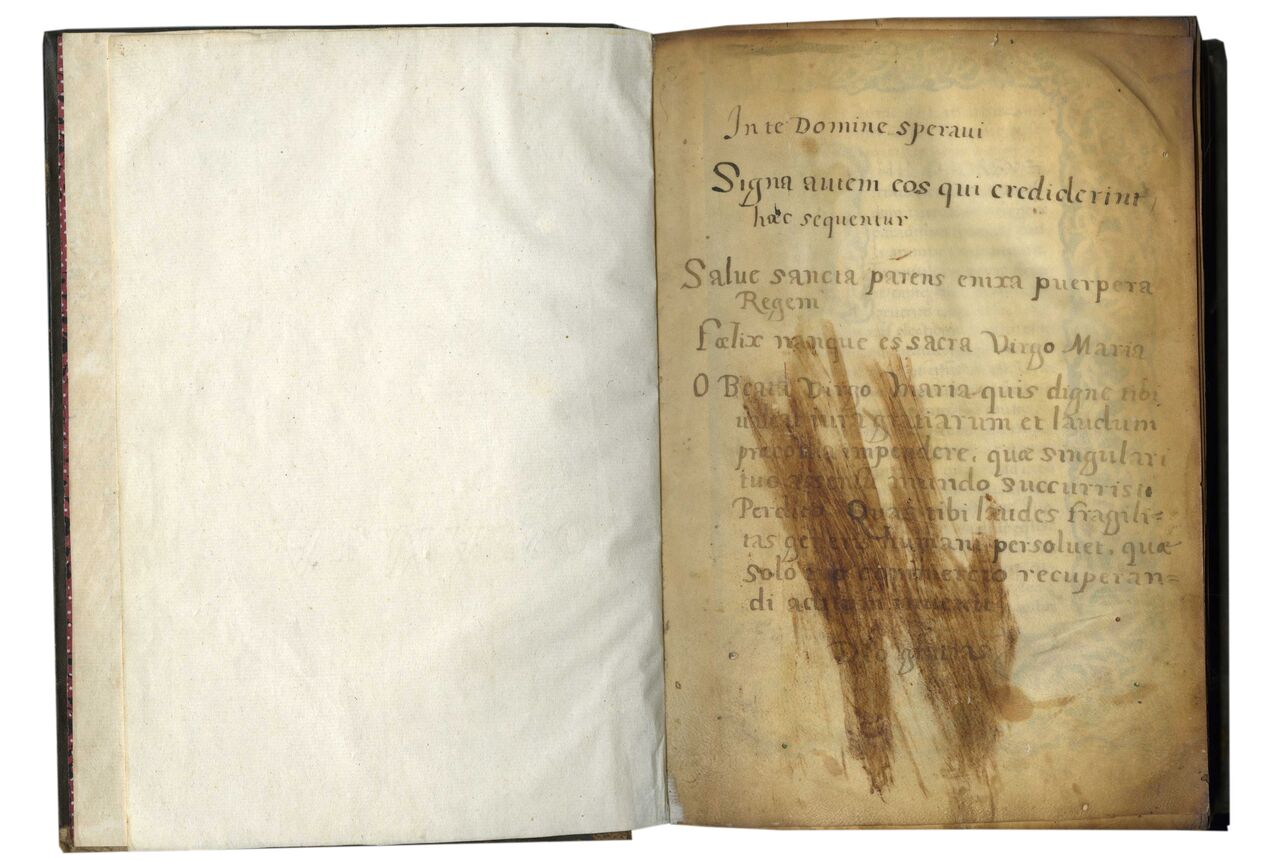 In te Domine speraui
Signa autem eos qui crediderint,
hæc sequentur
Salue sancta parens enixa puerpera
Regem
Fælix nanque es sacra Virgo Maria
O Beata Virgo Maria quis digne tibi
iura gratiarum et laudum
præconia impendere, quæ singulari
tuo assensu mundo succurristi
Perdito. Quas tibi laudes fragili=
tas generis humani persoluet, quæ
solo tuo commercio recuperan=
di aditum inuenit
Deo gratias